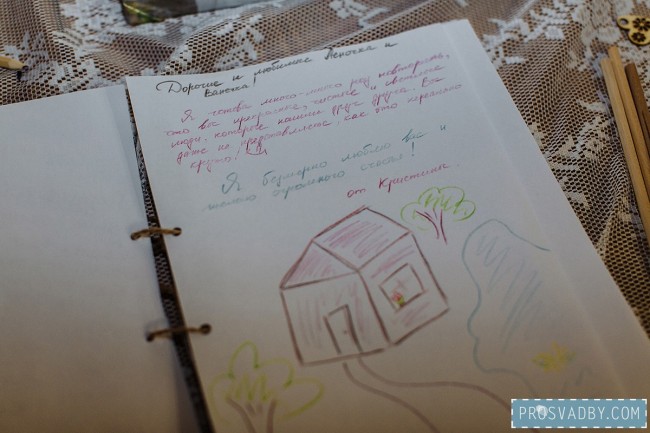 Дорогие и любимые Леночка и
Ванечка!
Я готова много-много раз повторять,
что вы прекрасные, чистые и светлые
люди, которые нашли друг друга. Вы
даже не представляете, как это нереально
круто!
Я безмерно люблю вас и
желаю огромного счастья!
от Кристины.
PROSVADBY.COM